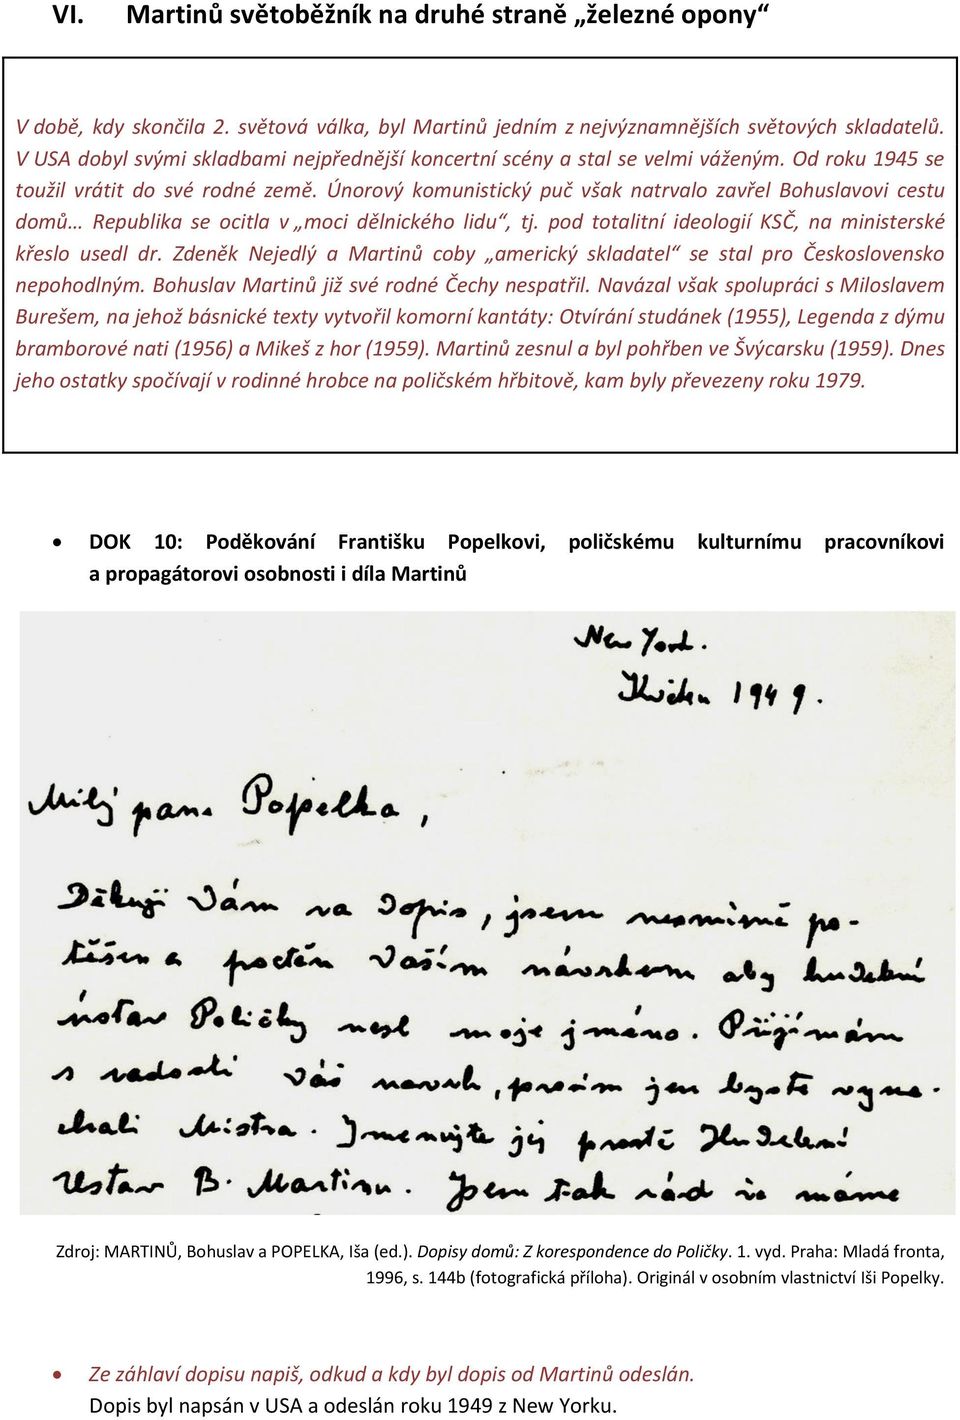 VI. Martinů světoběžník na druhé straně „železné opony“
V době, kdy skončila 2. světová válka, byl Martinů jedním z nejvýznamnějších světových skladatelů.
V USA dobyl svými skladbami nejpřednější koncertní scény a stal se velmi váženým. Od roku 1945 se
toužil vrátit do své rodné země. Únorový komunistický puč však natrvalo zavřel Bohuslavovi cestu
domů… Republika se ocitla v „moci dělnického lidu“, tj. pod totalitní ideologií KSČ, na ministerské
křeslo usedl dr. Zdeněk Nejedlý a Martinů coby „americký skladatel“ se stal pro Československo
nepohodlným. Bohuslav Martinů již své rodné Čechy nespatřil. Navázal však spolupráci s Miloslavem
Burešem, na jehož básnické texty vytvořil komorní kantáty: Otvírání studánek (1955), Legenda z dýmu
bramborové nati (1956) a Mikeš z hor (1959). Martinů zesnul a byl pohřben ve Švýcarsku (1959). Dnes
jeho ostatky spočívají v rodinné hrobce na poličském hřbitově, kam byly převezeny roku 1979.
• DOK 10: Poděkování Františku Popelkovi, poličskému kulturnímu pracovníkovi
a propagátorovi osobnosti i díla Martinů
New York.
1949.
Milý pane Popelka,
Děkuji Vám za dopis, jsem nesmírně po-
těšen a poctěn Vaším návrhem aby hudební
ústav Poličky nesl moje jméno. Přijímám
s radostí Váš navrh, prosím jen byste vyne-
chali Mistra. Jmenujte jej prostě Hudební
Ustav B. Martinu. Jsem tak rád že máme
Zdroj: MARTINŮ, Bohuslav a POPELKA, Iša (ed.). Dopisy domů: Z korespondence do Poličky. 1. vyd. Praha: Mladá fronta,
1996, s. 144b (fotografická příloha). Originál v osobním vlastnictví Iši Popelky.
• Ze záhlaví dopisu napiš, odkud a kdy byl dopis od Martinů odeslán.
Dopis byl napsán v USA a odeslán roku 1949 z New Yorku.